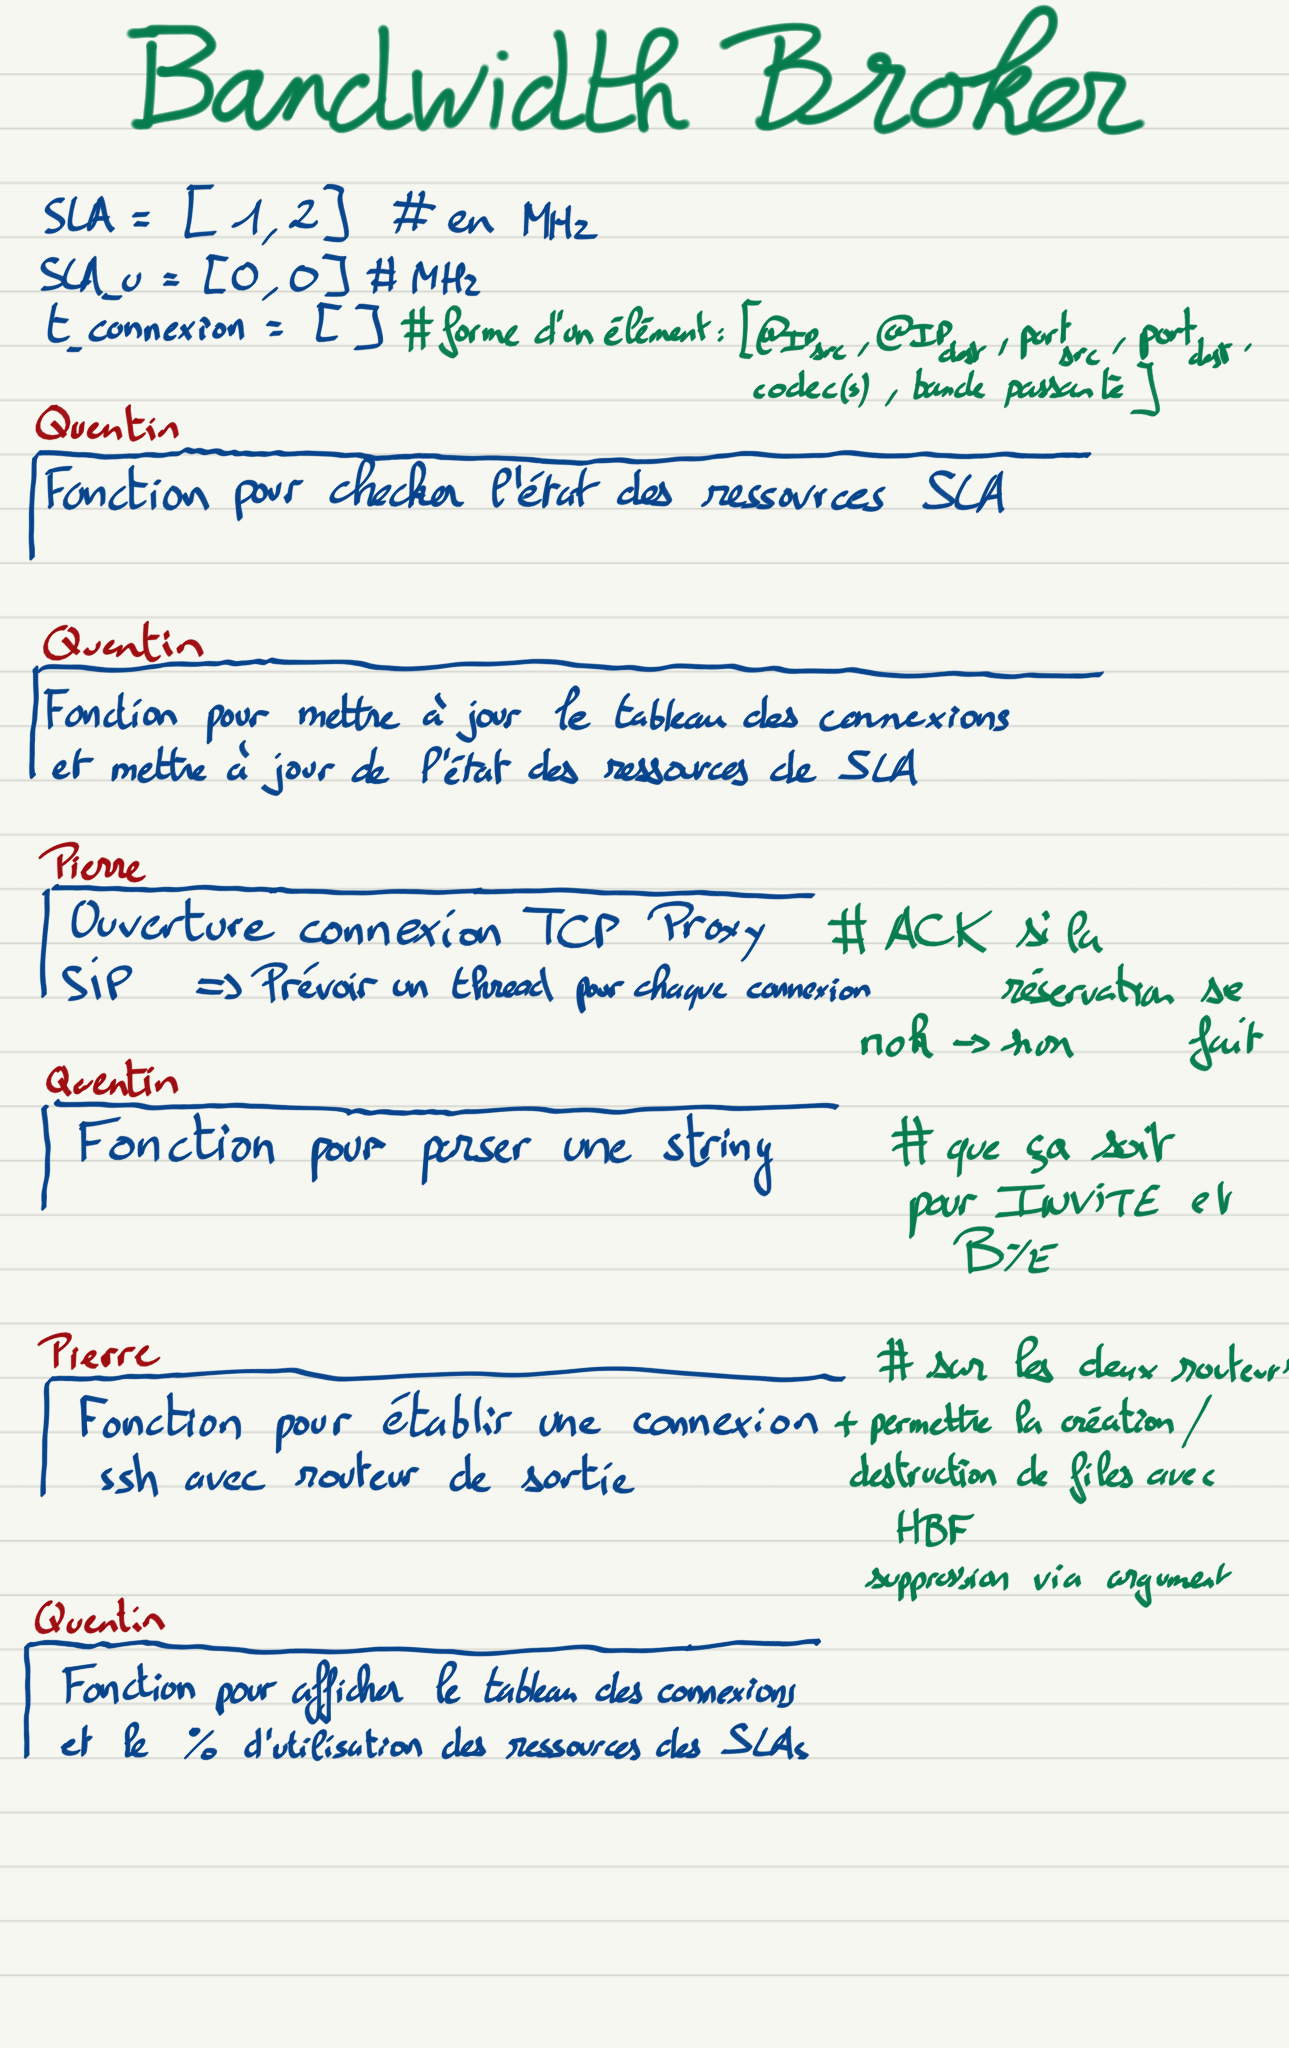 Bandwidth Broker
SLA = [1,2] # en MHz
SLA_u = [0,0] # MHz
t_connexion = [] # forme d'un élément: [@IP src, @IP dest, port src, port dest,
codec(s), bande passante]
Quentin
Fonction pour checker l'état des ressources SLA
Quentin
Fonction pour mettre à jour le tableau des connexions
et mettre à jour de l'état des ressources de SLA
Pierre
Ouverture connexion TCP Proxy # ACK si la
SiP => Prévoir un thread pour chaque connexion réservation se
nok -> non fait
Quentin
Fonction pour parser une string # que ça soit
pour INViTE et
BYE
Pierre
# sur les deux routeurs
Fonction pour établir une connexion + permettre la création/
ssh avec routeur de sortie destruction de files avec
HBF
suppression via argument
Quentin
Fonction pour afficher le tableau des connexions
et le % d'utilisation des ressources des SLAs